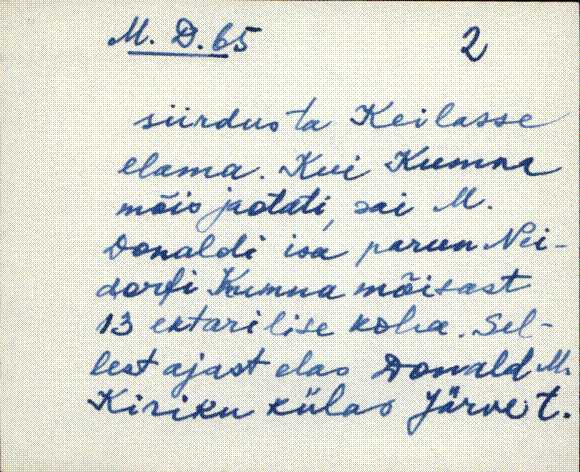 M. D. 65 2
siirdus ta Keilasse
elama. Kui Kumna
mõis jaotati, sai M.
Donaldi isa parun Nei-
dorfi Kumna mõisast
13 ektarilise koha. Sel-
lest ajast elas Donald M.
Kiriku külas Järve t.